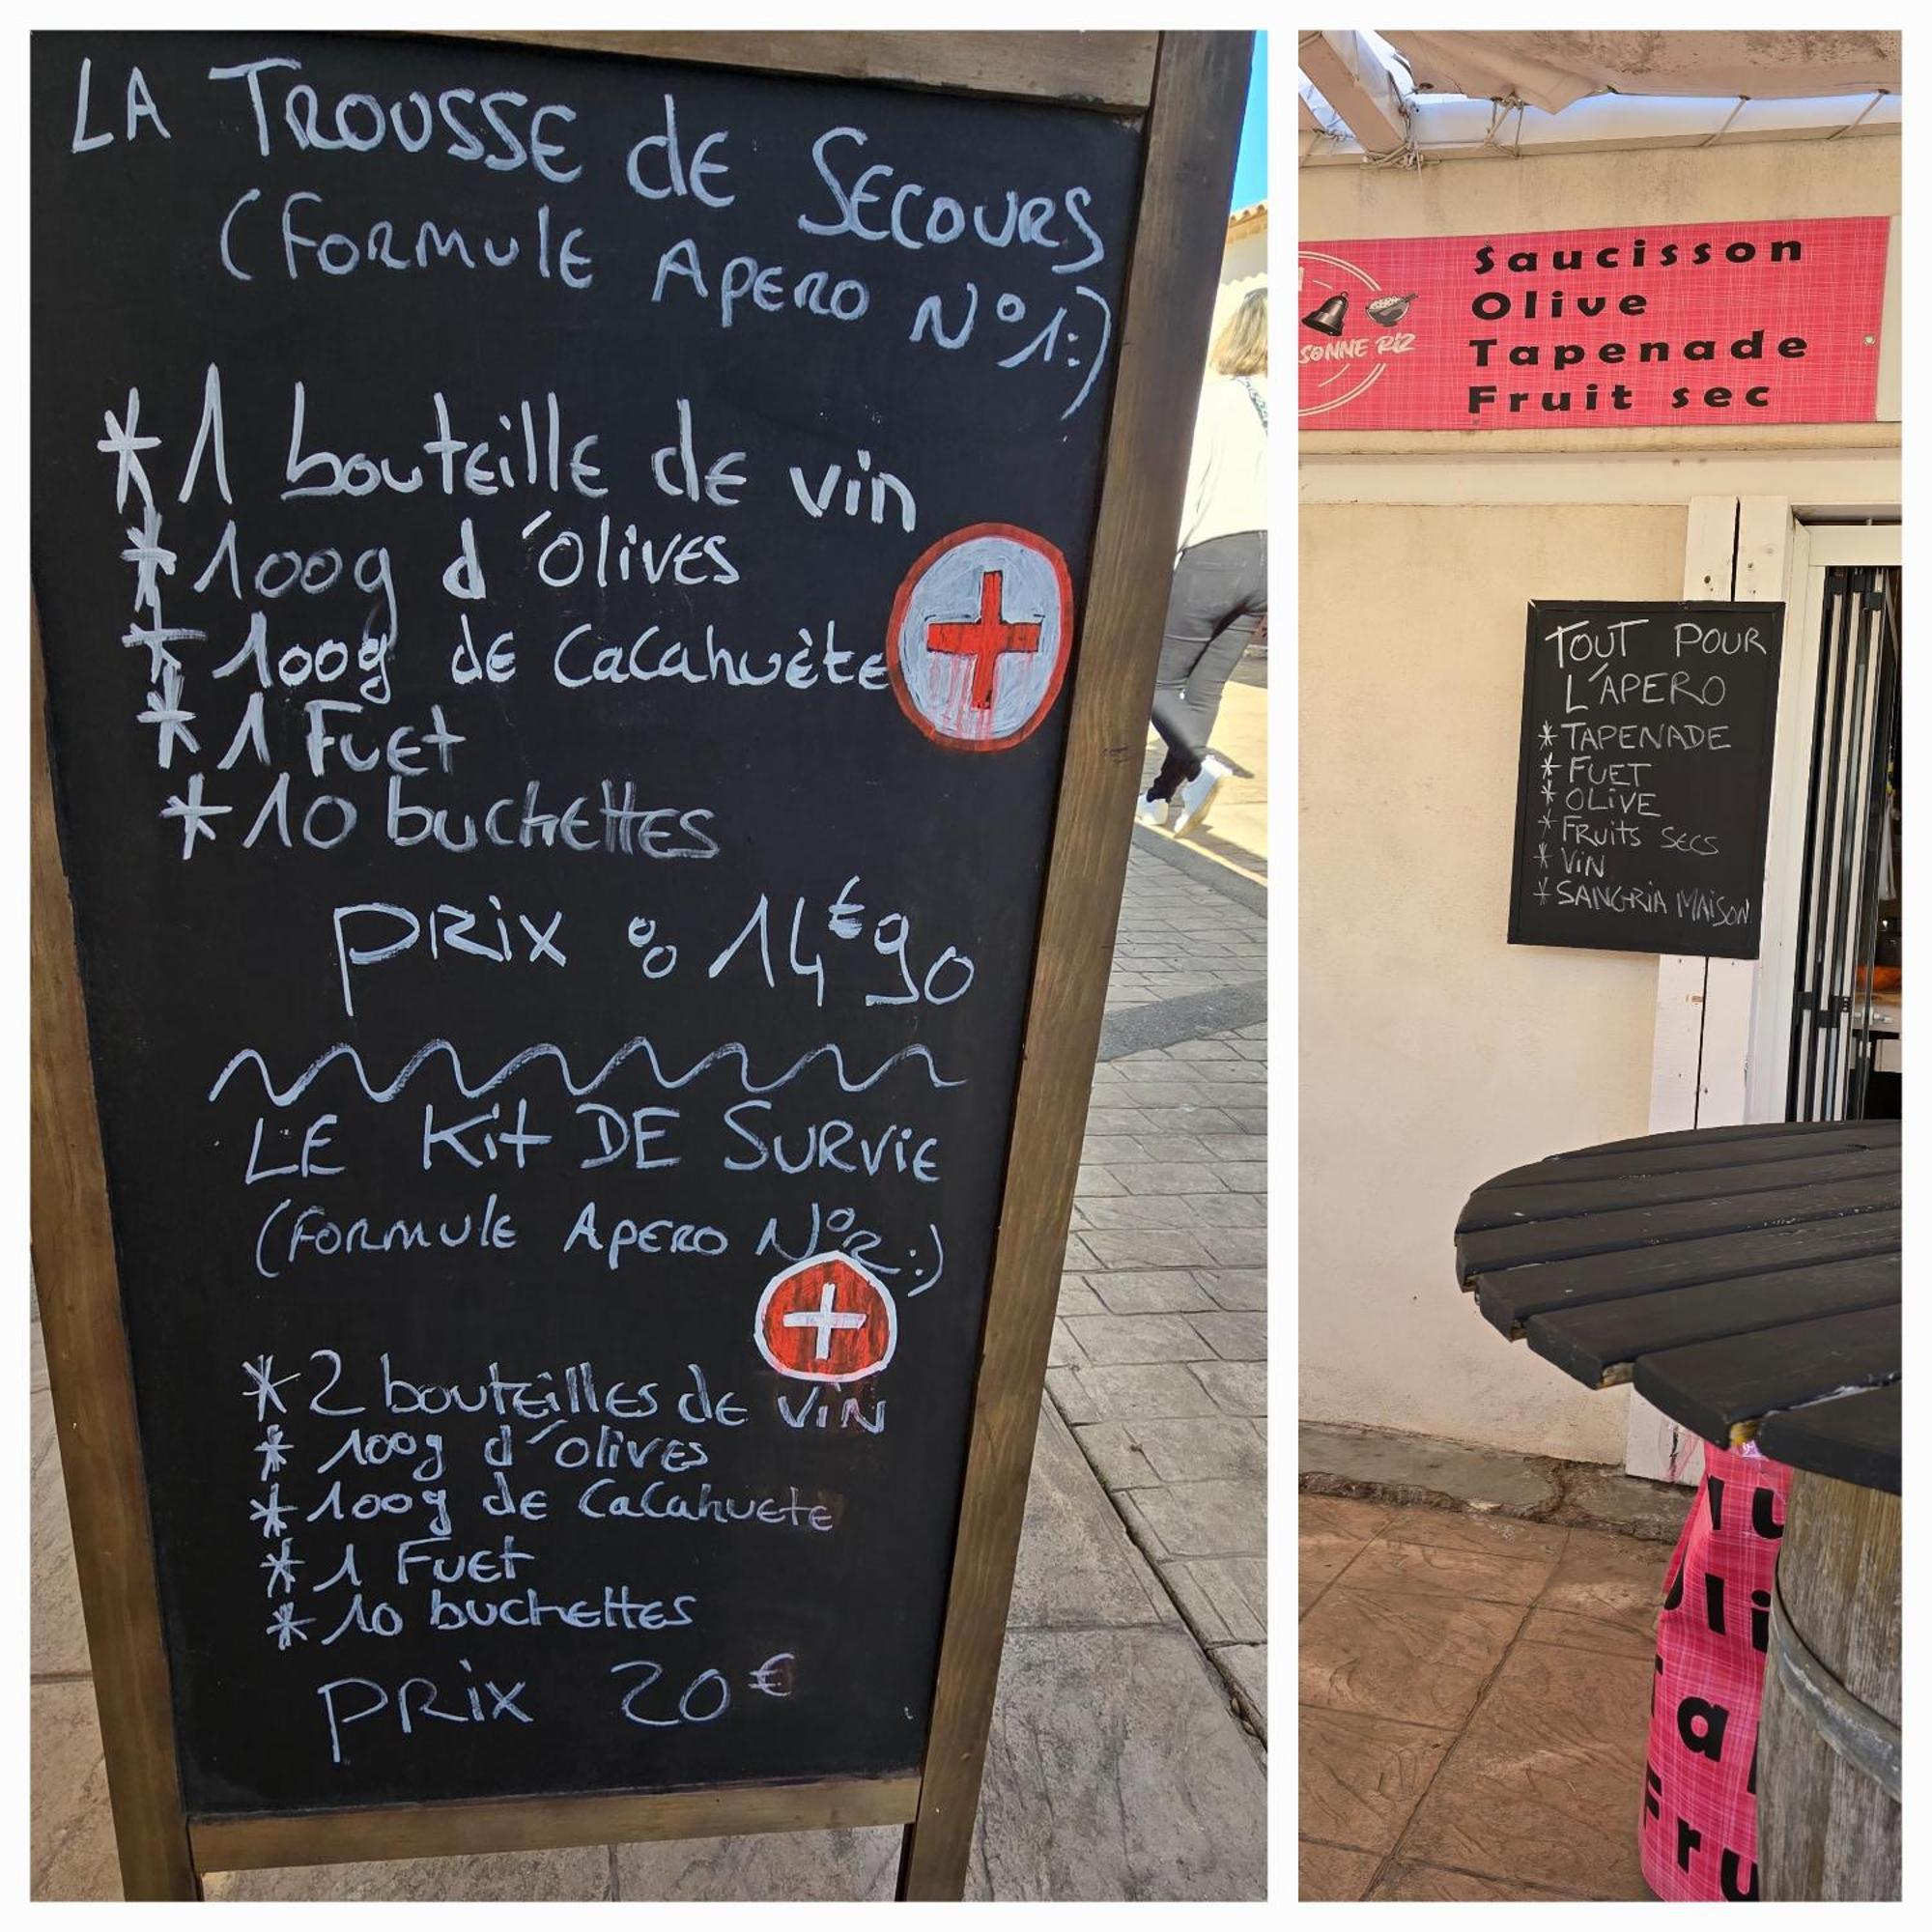 LA TROUSSE dE SECOURS
(FORMULE APERO N°1:)
*1 bouteille de vin
*100g d'olives
*100g de Cacahuète
*1 Fuet
*10 buchettes
PRIX : 14€90
LE Kit DE SURVIE
(FORMULE APERO N°2:)
*2 bouteilles de ViN
*100g d'olives
*100g de Cacahuete
*1 Fuet
*10 buchettes
PRiX 20€
Saucisson
Olive
Tapenade
Fruit sec
SONNE RIZ
TOUT POUR
L'APERO
*TAPENADE
*FUET
*OLIVE
*FRUITS SECS
*ViN
*SANGRIA MAISON